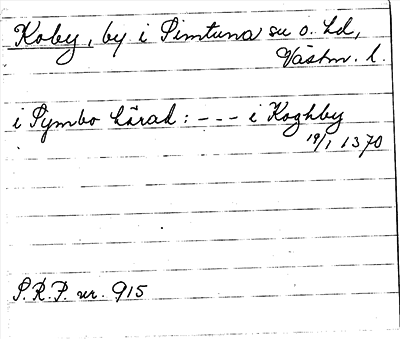 Koby, by i Simtuna sn o. hd,
Västm. l.
i Symbo härad: --- i Koghby
19/1 1370
S.R.P. nr. 915